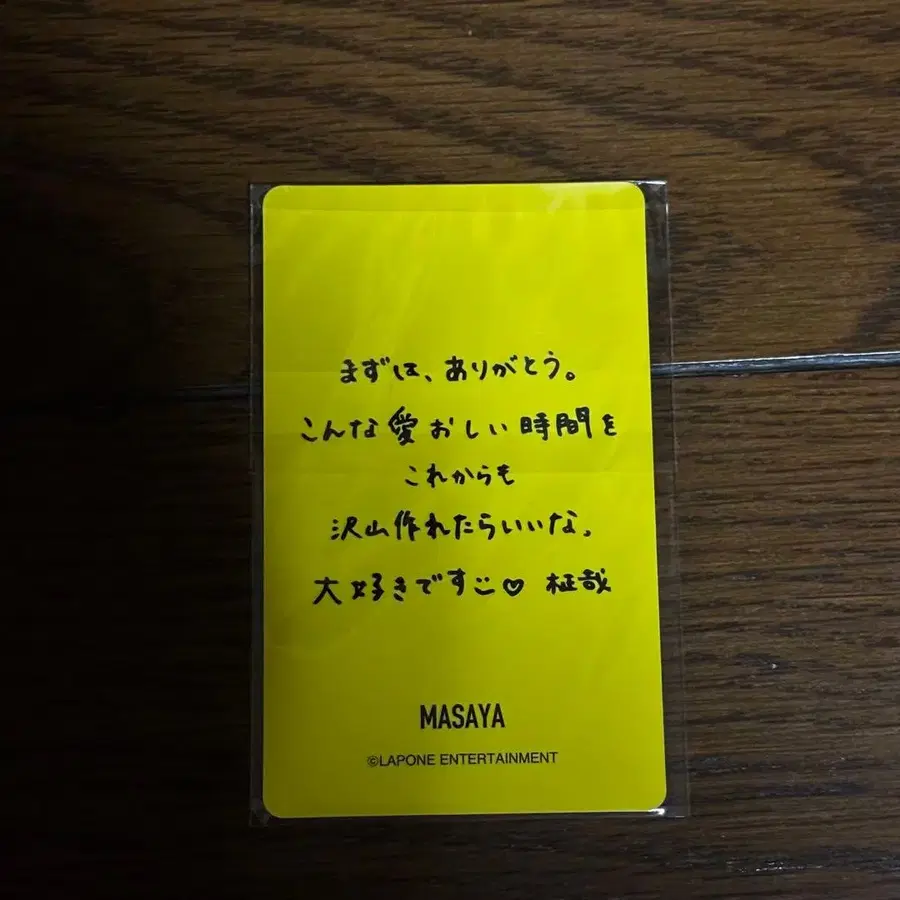 まずは、ありがとう。
こんな愛おしい時間を
これからも
沢山作れたらいいな。
大好きですご♡ 柾哉
MASAYA
©LAPONE ENTERTAINMENT